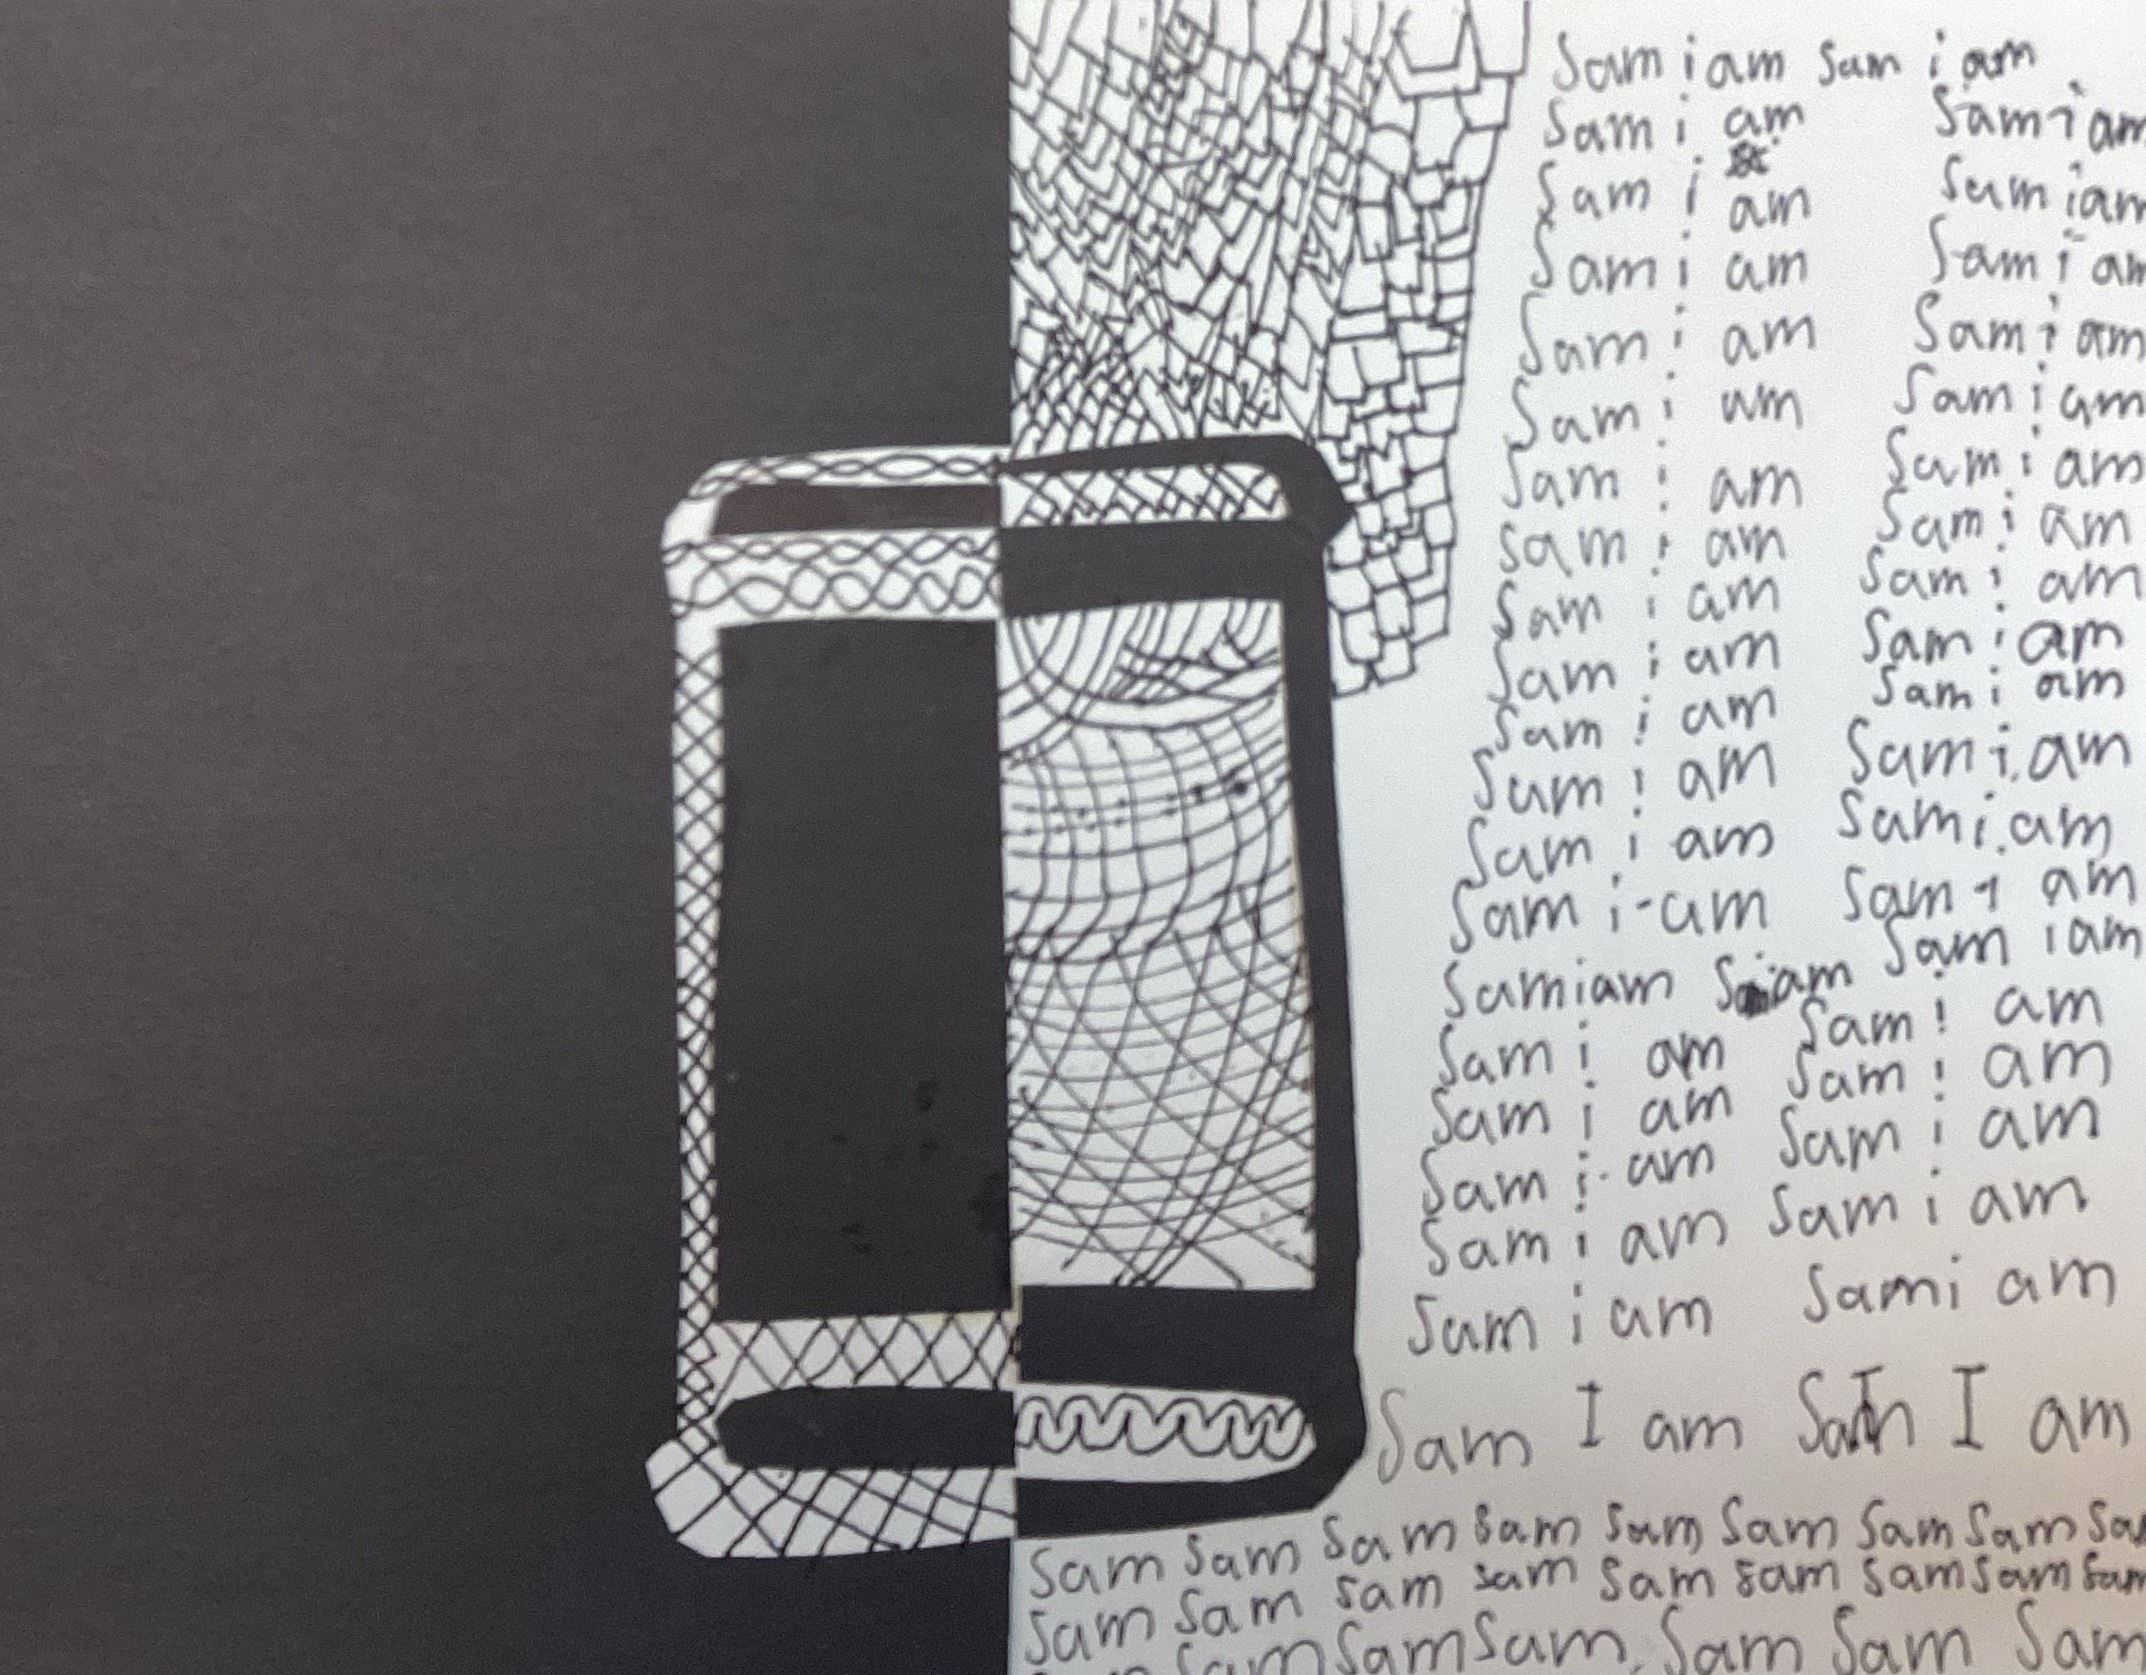 Sam i am Sam i am
Sam i am Sam i am
Sam i am Sam i am
Sam i am Sam i am
Sam i am Sam i am
Sam i am Sam i am
Sam i am Sam i am
Sam i am Sam i am
Sam i am Sam i am
Sam i am Sam i am
Sam i am Sam i am
Sam i am Sam i am
Sam i am Sam i am
Sam i-am Sam i am
Samiam Sam iam
Sam i am Sam i am
Sam i am Sam i am
Sam i am Sam i am
Sam i am Sam i am
Sam i am Sam i am
Sam I am Sam I am
Sam Sam Sam Sam Sam Sam Sam Sam
Sam Sam Sam Sam Sam Sam Sam Sam Sam
Sam Sam Sam Sam Sam Sam